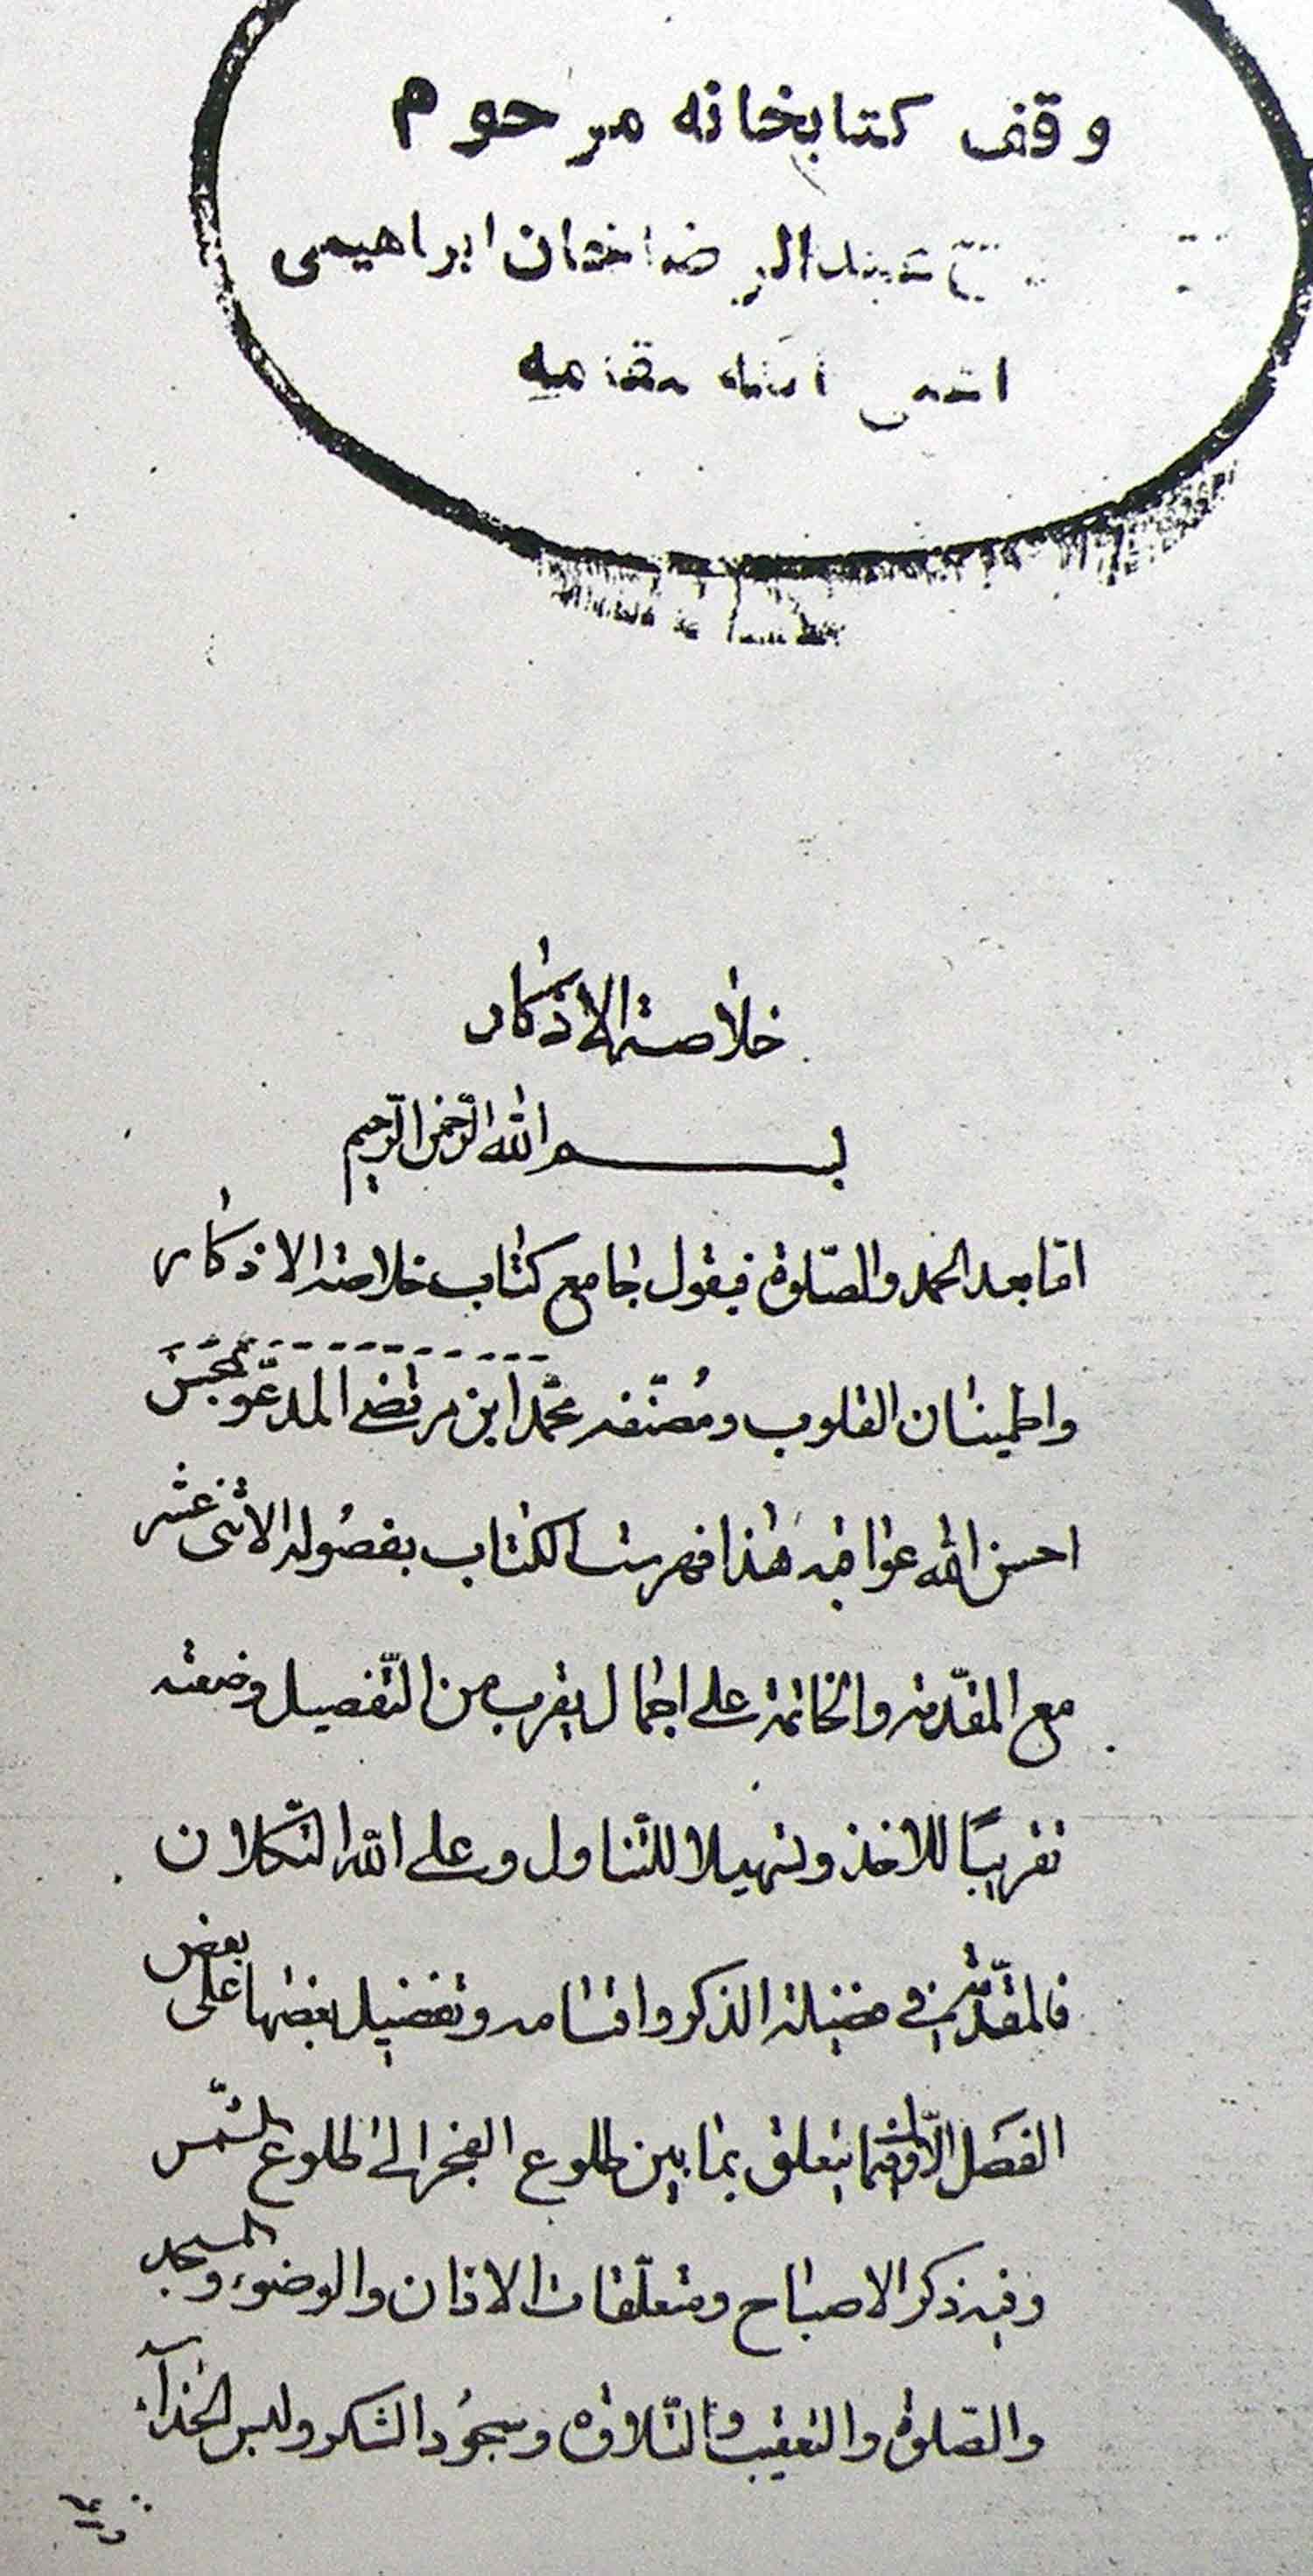 وقف کتابخانه مرحوم
عبدالرضاخان ابراهیمی
اعلی الله مقامه
خلاصة الاذكار
بسم الله الرحمن الرحيم
امّا بعد الحمد والصّلوة فيقول جامع كتاب خلاصة الاذكار
واطمينان القلوب ومُصنّفه محمّد ابن مرتضى المدعّو بمحسن
احسن الله عواقبه هذا فهرست الكتاب بفصُوله الاثنى عشر
مع المقدّمة والخاتمة على اجمال يقرب من التّفصيل وضعته
تقريبًا للاخذ وتسهيلا للتّناول وعلى الله التّكلان
فالمقدّمة فى فضيلة الذكر واقسامه وتفضيل بعضها على بعض
الفصَل الاوّل فيما يتعلق بما بين طلوع الفجر الى طلوع الشّمس
وفيه ذكر الاصباح ومتعلّقات الاذان والوضوء والمسجد
والصّلوة والتعقيب والتّلاوة وسجُود الشكر ولبس الحذآء